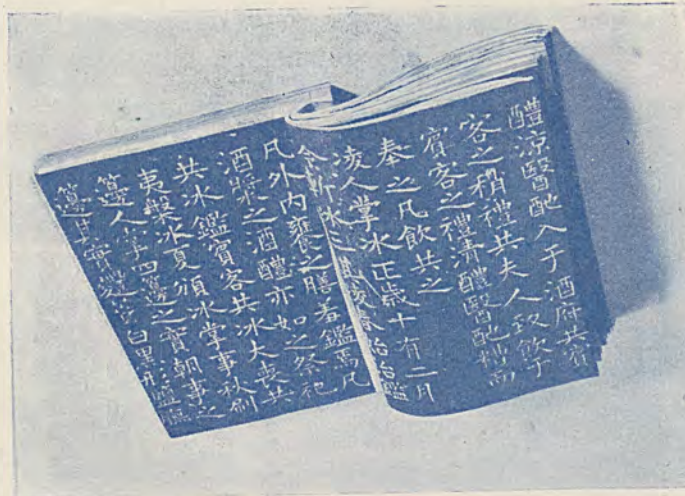 醴涼醫酏入于酒府共賓
客之稍禮共夫人致飲于
賓客之禮清醴醫酏糟而
奉之凡飲共之
凌人掌冰正歲十有二月
令斬冰三其凌春始治鑑
凡外内饔之膳羞鑑焉凡
酒漿之酒醴亦如之祭祀
共冰鑑賓客共冰大喪共
夷槃冰夏頒冰掌事秋刷
籩人掌四籩之實朝事之
籩其實麷蕡白黑形鹽膴